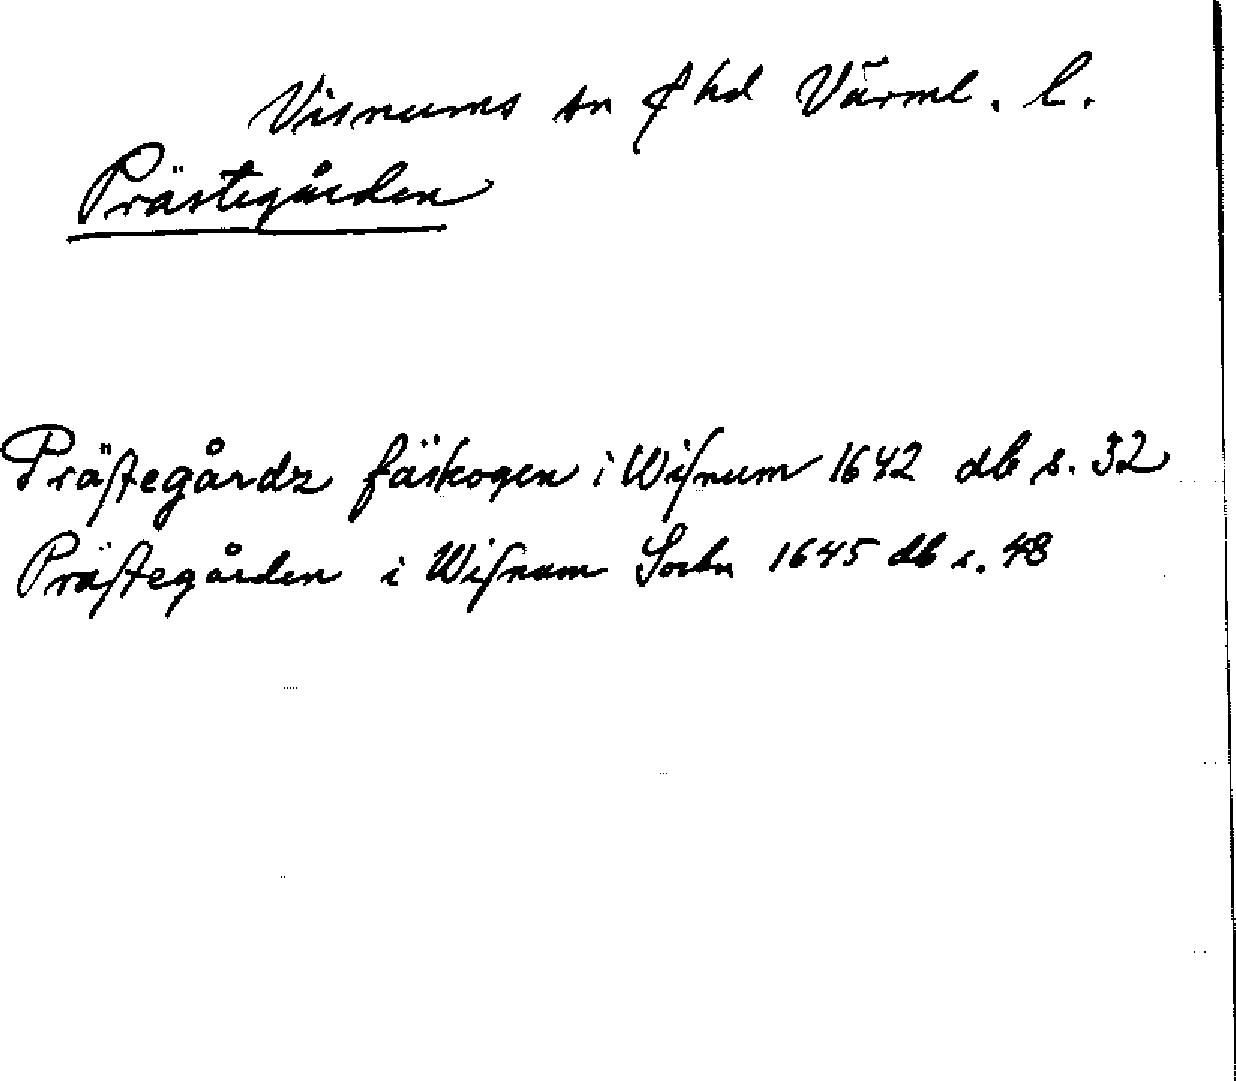 Visnums sn Ø hd Värml. l.
Prästegården
Präſtegårdz fäskogen i Wiſnum 1642 db s. 32
Präſtegården i Wiſnum Sochn 1645 db s. 48